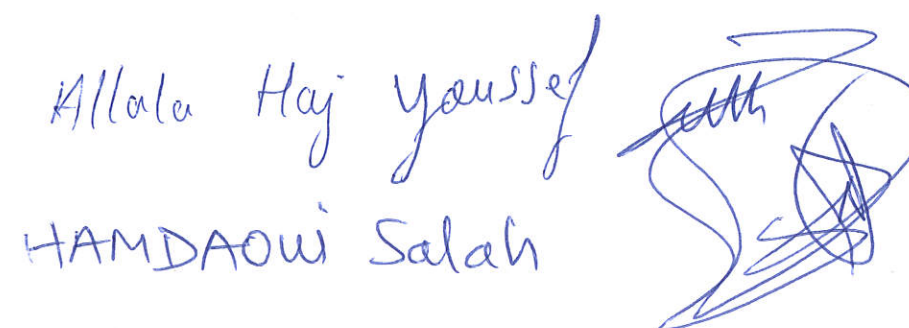 Allala Haj Youssef
HAMDAOUi Salah